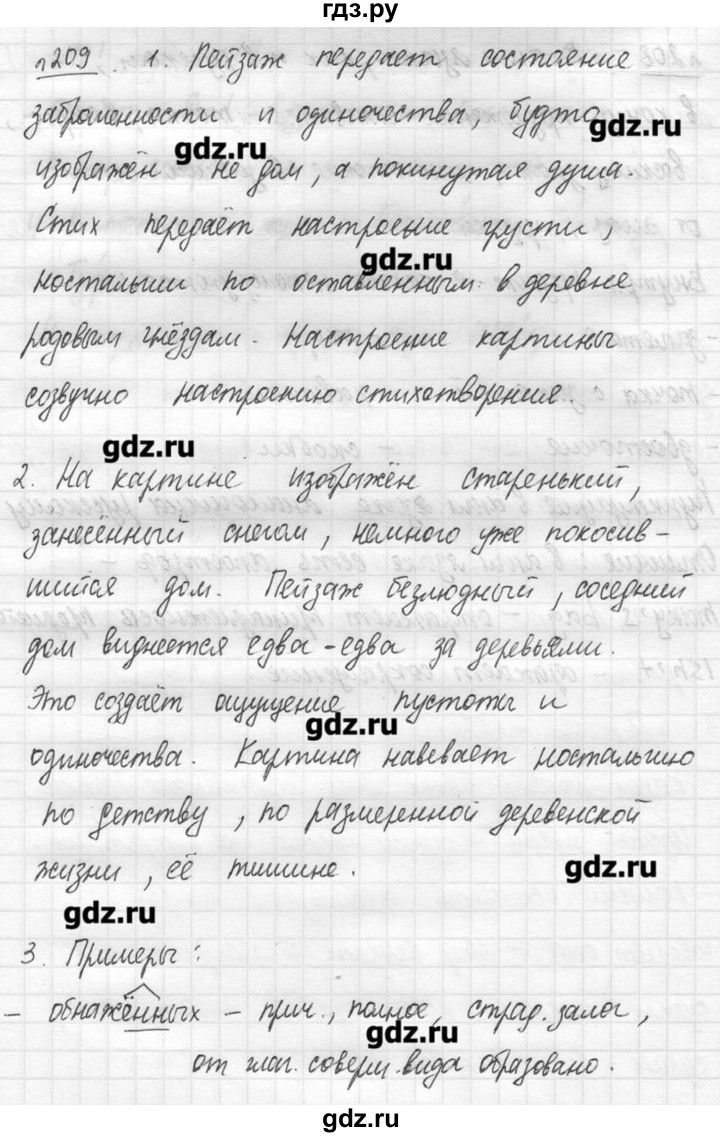 гдз.ру
№209. 1. Пейзаж передаёт состояние
заброшенности и одиночества, будто
gdz.ru
gdz.ru
изображён не дом, а покинутая душа.
Стих передаёт настроение грусти,
gdz.ru
ностальгии по оставленным в деревне
родовым гнёздам. Настроение картины
созвучно настроению стихотворения.
gdz.ru
2. На картине изображён старенький,
занесенный снегом, немного уже покосив-
шийся дом. Пейзаж безлюдный, соседний
дом виднеется едва-едва за деревьями.
Это создаёт ощущение пустоты и
gdz.ru
одиночества. Картина навевает ностальгию
по детству, по размеренной деревенской
жизни, её тишине.
gdz.ru
gdz.ru
3. Примеры:
- обнажённых - прич., полное, страд. залог,
gdz.ru
от глаг. соверш. вида образовано.
gdz.ru